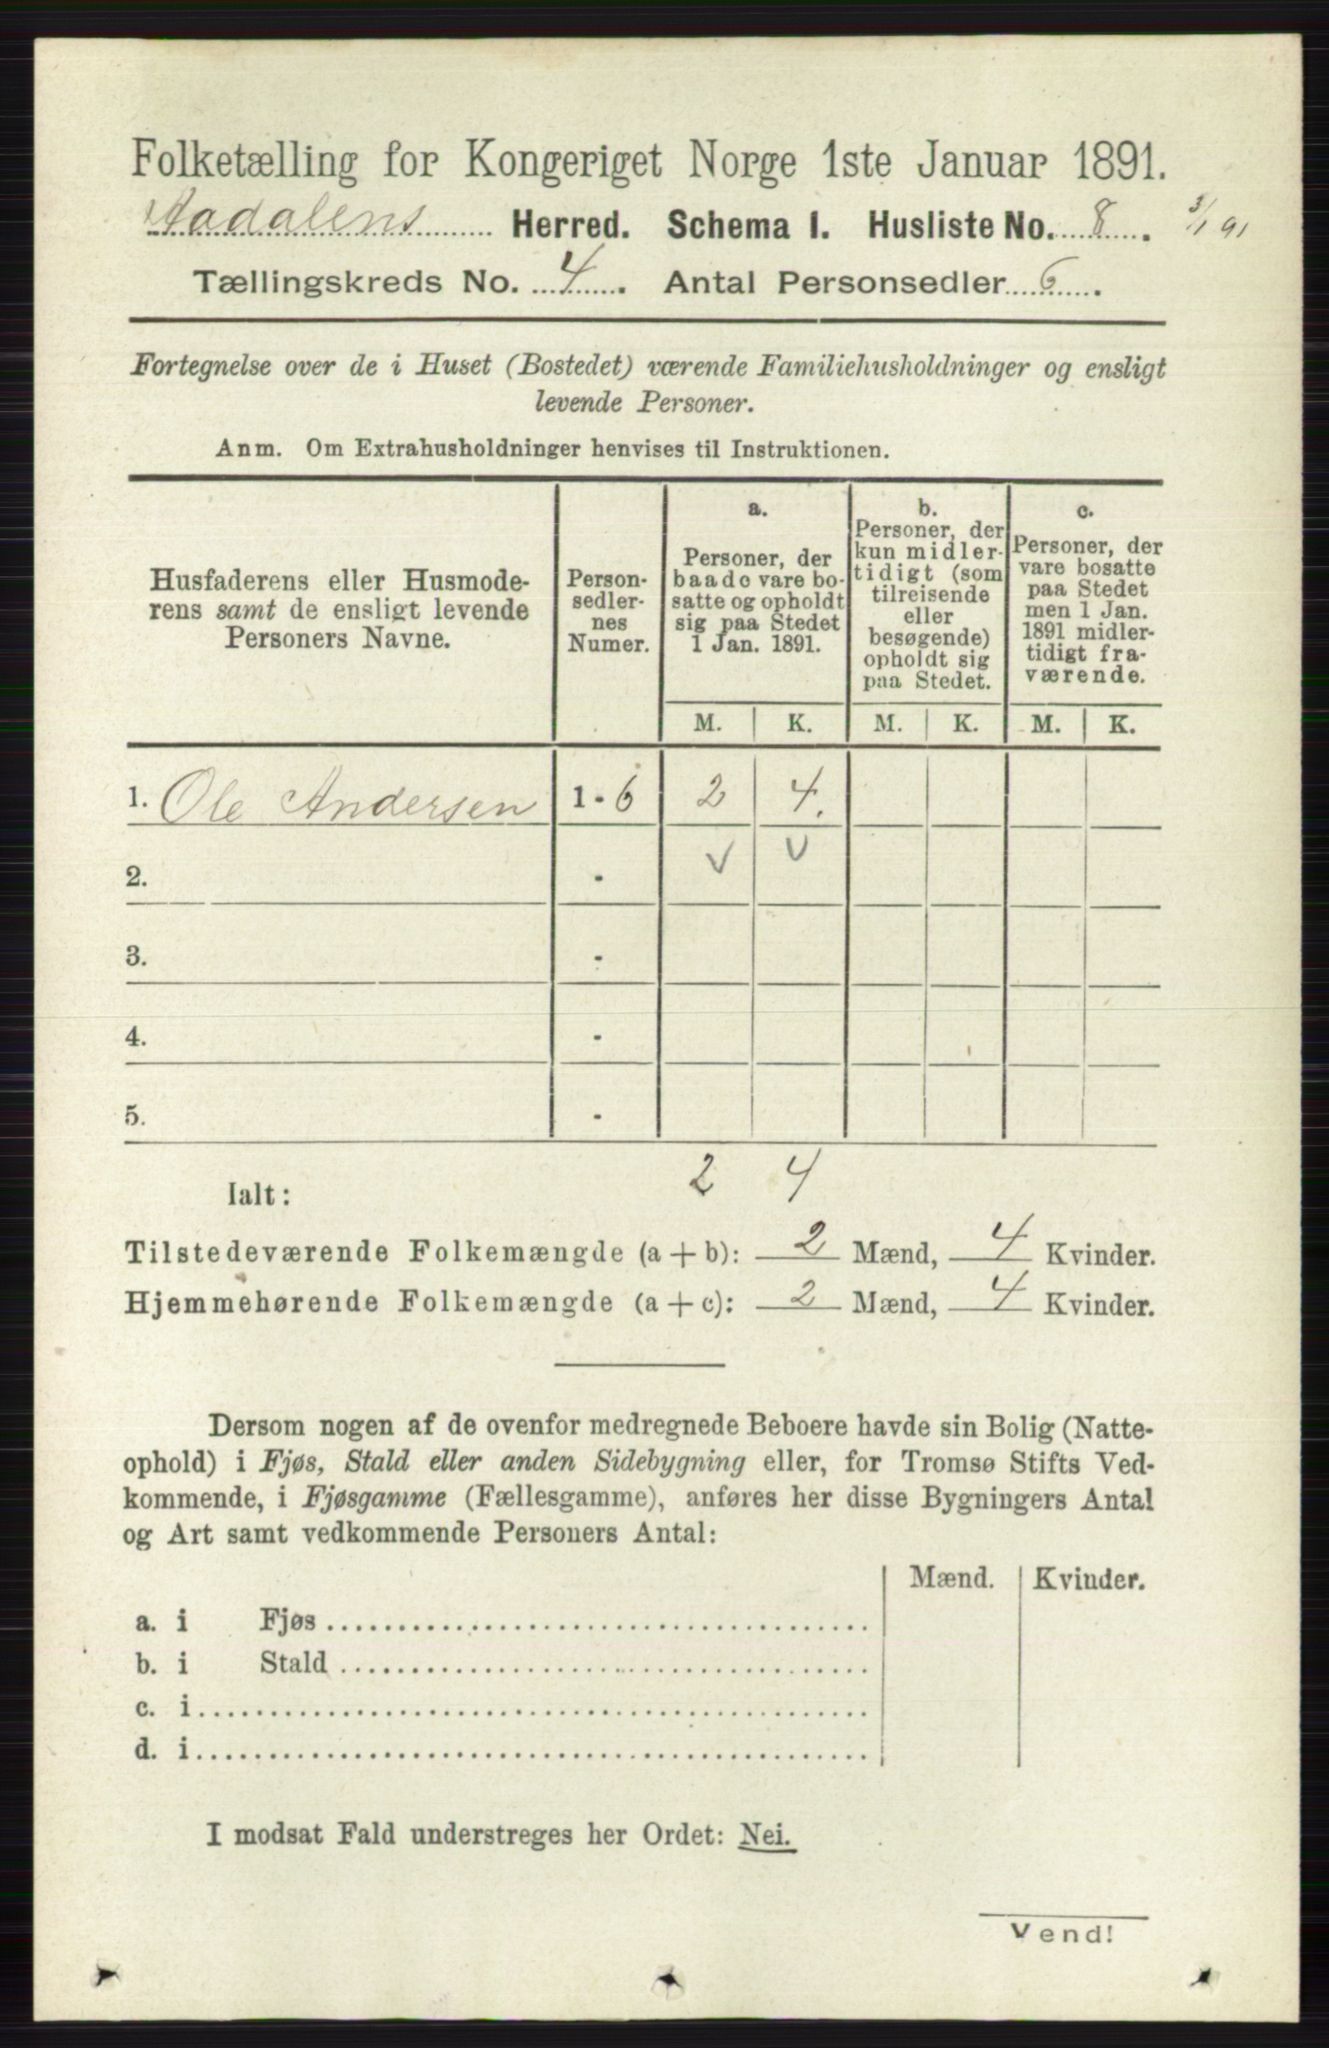 Folketælling for Kongeriget Norge 1ste Januar 1891.
Aadalens Herred. Schema I. Husliste No. 8. 3/1 91
Tællingskreds No. 4. Antal Personsedler 6.
Fortegnelse over de i Huset (Bostedet) værende Familiehusholdninger og ensligt
levende Personer.
Anm. Om Extrahusholdninger henvises til Instruktionen.
Husfaderens eller Husmode-
rens samt de ensligt levende
Personers Navne.
Person-
sedler-
nes
Numer.
a.
Personer, der
baade vare bo-
satte og opholdt
sig paa Stedet
1 Jan. 1891.
b.
Personer, der
kun midler-
tidigt (som
tilreisende
eller
besøgende)
opholdt sig
paa Stedet.
c.
Personer, der
vare bosatte
paa Stedet
men 1 Jan.
1891 midler-
tidigt fra-
værende.
M. K. M. K. M. K.
1. Ole Andersen 1 - 6 2 4.
2. - v v
3. -
4. -
5. -
Ialt: 2 4
Tilstedeværende Folkemængde (a + b): 2 Mænd, 4 Kvinder.
Hjemmehørende Folkemængde (a + c): 2 Mænd, 4 Kvinder.
Dersom nogen af de ovenfor medregnede Beboere havde sin Bolig (Natte-
ophold) i Fjøs, Stald eller anden Sidebygning eller, for Tromsø Stifts Ved-
kommende, i Fjøsgamme (Fællesgamme), anføres her disse Bygningers Antal
og Art samt vedkommende Personers Antal:
Mænd. Kvinder.
a. i Fjøs
b. i Stald
c. i
d. i
I modsat Fald understreges her Ordet: Nei.
Vend!